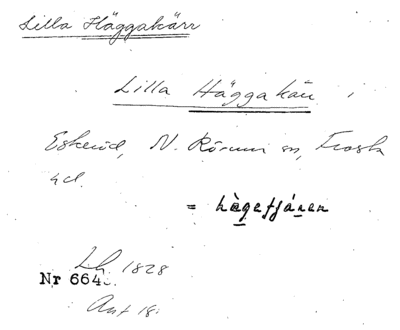 Lilla Häggakärr
Lilla Häggakärr i
Eskeröd, N. Rörum sn, Frosta
hd.
= hàgefjáren
Lh. 1828
Nr 664.
Ant 18.